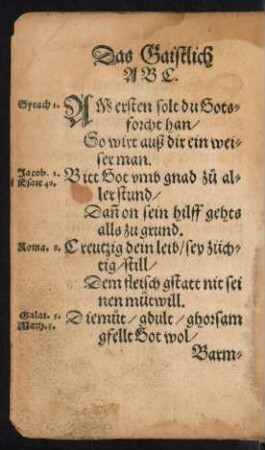 Das Gaistlich
A B C.
Syrach 1. AM ersten solt du Gots-
forcht han/
So wirt auß dir ein wei-
ser man.
Jacob. 1. Bitt Got vmb gnad zů al-
ler stund/
Dañ on sein hilff gehts
alls zu grund.
Roma. 8. Creutzig dein leib/ sey züch-
tig/ still/
Dem fleisch gstatt nit sei
nen můtwill.
Galat. 5. Diemüt/ gdult/ ghorsam
Math. 5. gfellt Got wol/
Barm-